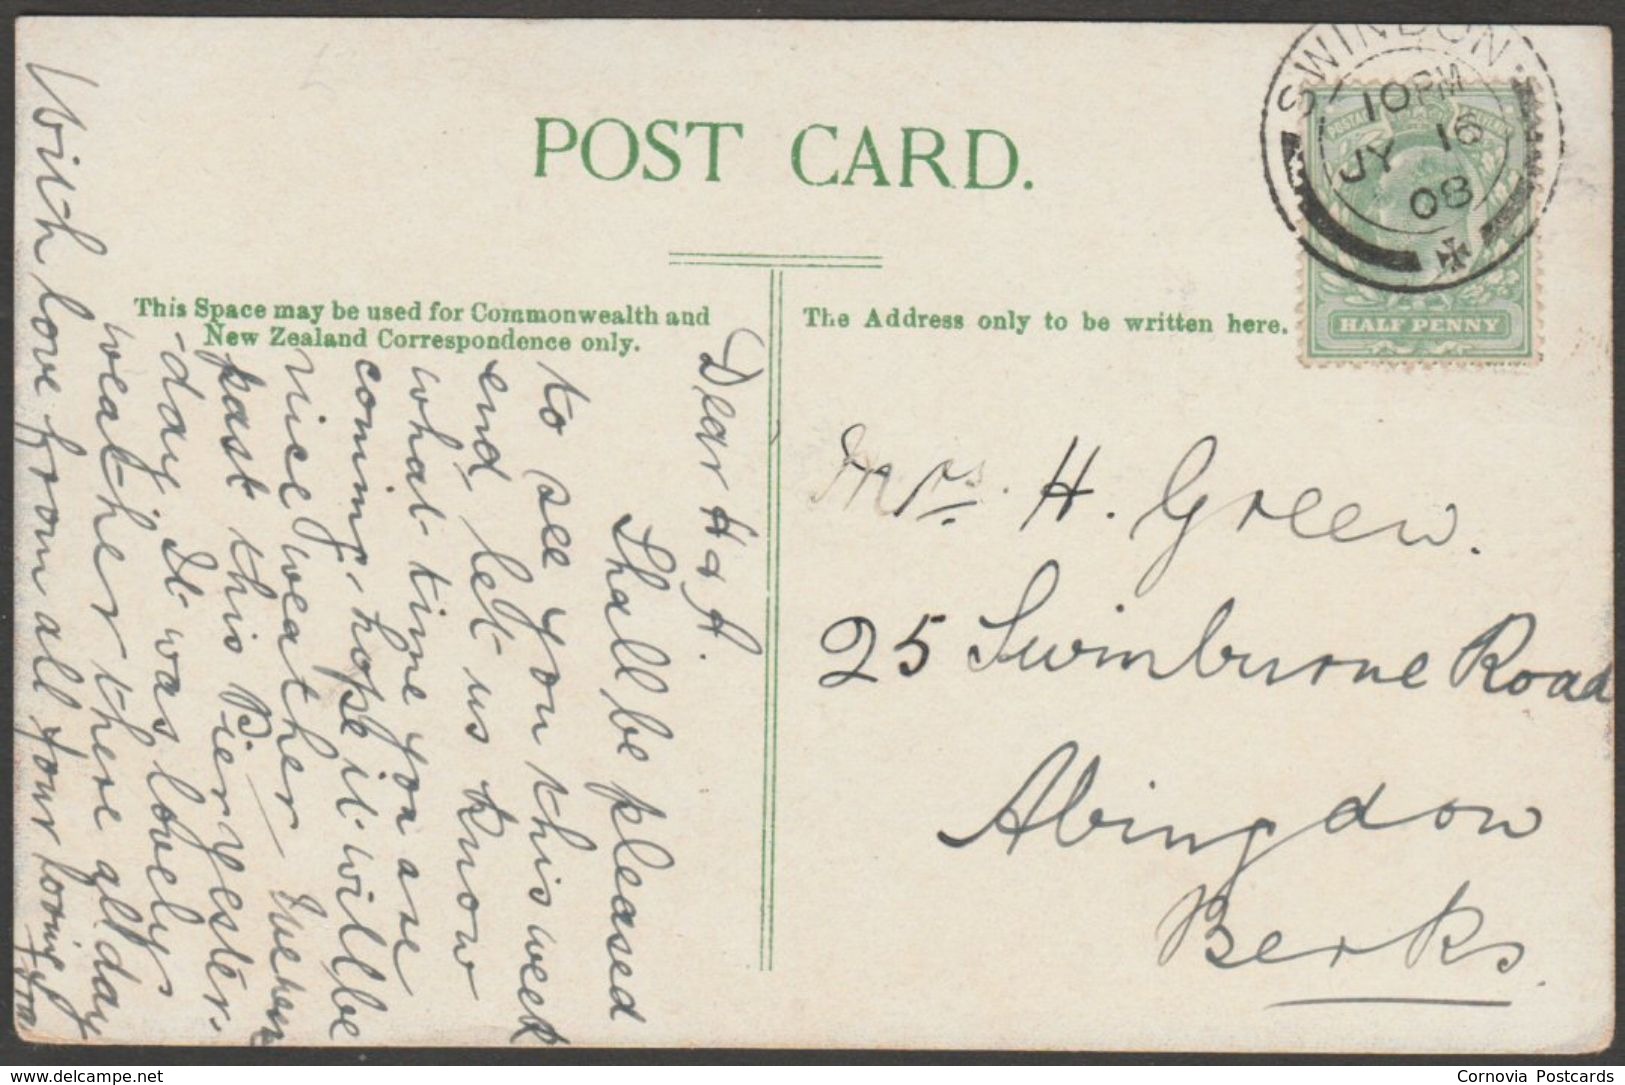 POST CARD.
This Space may be used for Commonwealth and
New Zealand Correspondence only.
The Address only to be written here.
SWINDON
10 PM
JY 16
08
POSTAGE
HALF PENNY
Dear H & A.
Shall be pleased
to see you this week
end let us know
what time you are
coming, hope it will be
nice weather
past this Pier yester-
-day It was lovely
weather there all day
With love from all your loving
Mrs. H. Green.
25 Swinburne Road
Abingdon
Berks.
www.delcampe.net
Cornovia Postcards